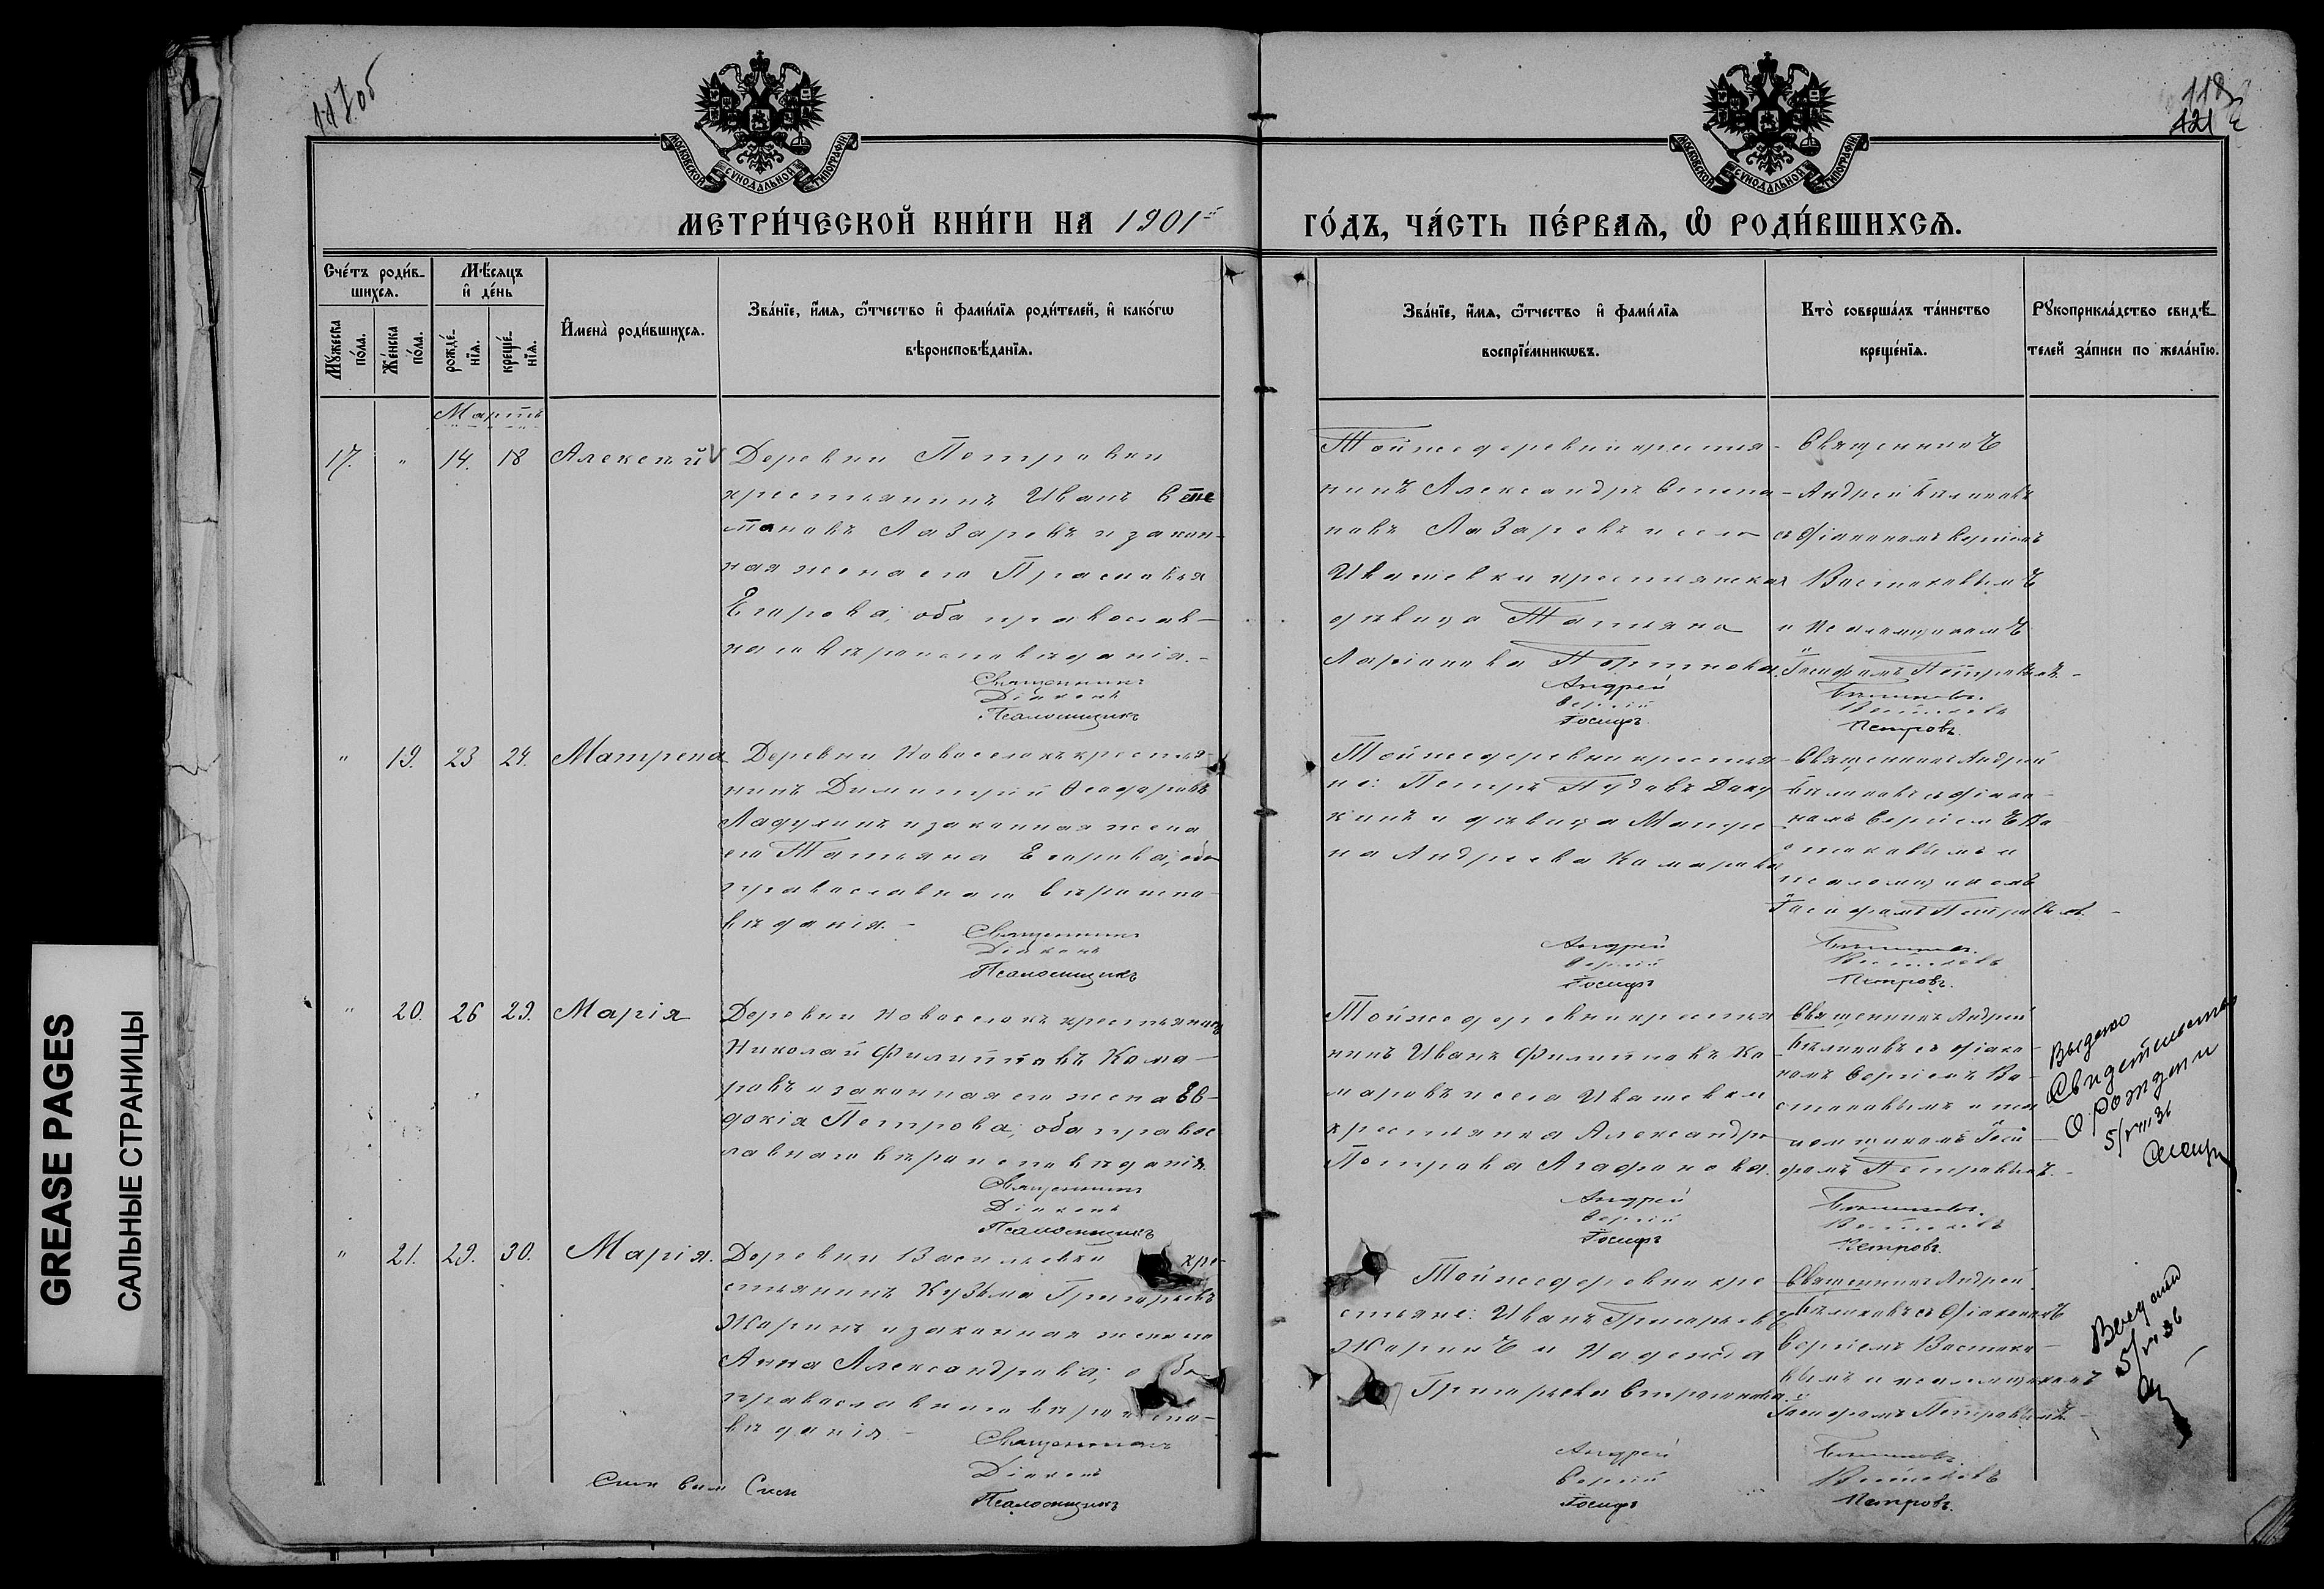 117об
118
121
МОСКОВСКОЙ СѴНОДАЛЬНОЙ ТИПОГРАФІИ
МОСКОВСКОЙ СѴНОДАЛЬНОЙ ТИПОГРАФІИ
МЕТРИ́ЧЕСКОЙ КНИ́ГИ НА 1901й
ГО́ДЪ, ЧА́СТЬ ПЕ́РВАѦ, Ѡ҆ РОДИ́ВШИХСѦ.
Сче́тъ роди́в-
шихсѧ.
Мꙋ́жеска по́ла.
Же́нска по́ла.
Мѣ́сѧцъ
и҆ де́нь
рожде́-
нїѧ.
креще́-
нїѧ.
И҆мена̀ роди́вшихсѧ.
Зва́нїе, и҆́мѧ, ѻ҆́тчество и҆ фами́лїѧ роди́телей, и҆ како́гѡ
вѣроисповѣ́данїѧ.
Зва́нїе, и҆́мѧ, ѻ҆́тчество и҆ фами́лїѧ
воспрїе́мникѡвъ.
Кто̀ соверша́лъ та́инство
креще́нїѧ.
Рꙋкоприкла́дство свидѣ́-
телей за́писи по жела́нїю.
Мартъ
17. " 14. 18 Алексѣй
Деревни Петровки
крестьянинъ Иванъ Сте
пановъ Лазаревъ и закон-
ная жена его Прасковья
Егорова; оба православ-
наго вѣроисповѣданія.-
Священникъ
Діаконъ
Псаломщикъ
Тойже деревни крестья-
нинъ Александръ Степа-
новъ Лазаревъ и села
Ивашевки крестьянская
дѣвица Татьяна
Ларіонова
Андрей
Сергій
Іосифъ
Священникъ
Андрей Бѣликовъ
съ діакономъ Сергіемъ
Востоковымъ
и псаломщикомъ
Іосифомъ Петровымъ.-
Бѣликовъ.
Востоковъ
Петровъ.
" 19. 23 24. Матрена
Деревни Новоселокъ крестья-
нинъ Димитрій Ѳеодоровъ
Ладухинъ и законная жена
его Татьяна Егорова; оба
православнаго вѣроиспо-
вѣданія.-
Священникъ
Діаконъ
Псаломщикъ
Тойже деревни крестья-
не: Петръ
и дѣвица Матре
на Андреева Комарова
Андрей
Сергій
Іосифъ
Священникъ Андрей
Бѣликовъ съ діако-
номъ Сергіемъ Во-
стоковымъ и
псаломщикомъ
Іосифомъ Петровымъ.-
Бѣликовъ.
Востоковъ
Петровъ.
" 20. 26 29. Марія
Деревни Новоселокъ крестьянинъ
Николай Филипповъ Кома-
ровъ и законная его жена Ев-
докія Петрова; оба правос
лавнаго вѣроисповѣданія.
Священникъ
Діаконъ
Псаломщикъ
Тойже деревни крестья
нинъ Иванъ Филипповъ Ко-
маровъ и села Ивашевки
крестьянка Александра
Петрова Агафонова.
Андрей
Сергій
Іосифъ
Священникъ Андрей
Бѣликовъ съ діако-
номъ Сергіемъ Во-
стоковымъ и пса
ломщикомъ Іоси-
фомъ Петровымъ.-
Бѣликовъ.
Востоковъ
Петровъ.
Выдано
Свидетельство
о рождении
5/VIII 36
" 21. 29. 30. Марія.
Деревни Васильевки кре-
стьянинъ Кузьма Григорьевъ
Жаринъ и законная жена его
Анна Александрова; оба
православнаго вѣроиспо-
вѣданія.-
Священникъ
Діаконъ
Псаломщикъ
Тойже деревни кре
стьяне: Иванъ Григорьевъ
Жаринъ и Надежда
Григорьева
Андрей
Сергій
Іосифъ
Священникъ Андрей
Бѣликовъ съ діакономъ
Сергіемъ Востоко-
вымъ и псаломщикомъ
Іосифомъ Петровымъ.-
Бѣликовъ.
Востоковъ
Петровъ.
GREASE PAGES
САЛЬНЫЕ СТРАНИЦЫ